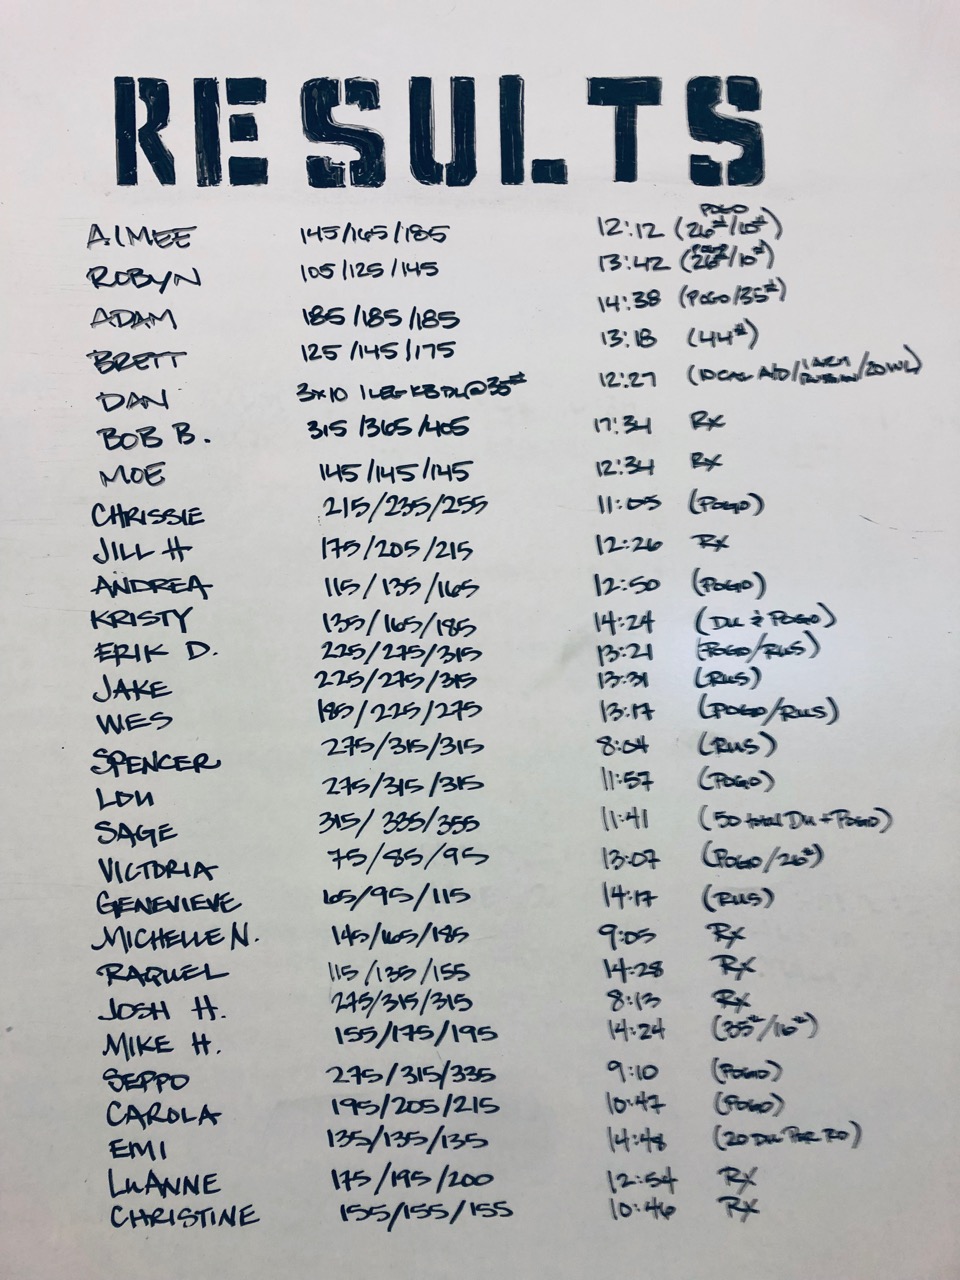 RESULTS
AIMEE 145/165/185 12:12 (POGO 26#/10#)
ROBYN 105/125/145 13:42 (26#/10#)
ADAM 185/185/185 14:38 (POGO/35#)
BRETT 125/145/175 13:18 (44#)
DAN 3x10 1 LEG KB DL@35# 12:27 (10 CAL A/D/1 ARM RUSSIAN/20 WL)
BOB B. 315/365/405 17:34 RX
MOE 145/145/145 12:34 RX
CHRISSIE 215/235/255 11:05 (POGO)
JILL H 175/205/215 12:26 RX
ANDREA 115/135/165 12:50 (POGO)
KRISTY 135/165/185 14:24 (DU & POGO)
ERIK D. 225/275/315 13:21 (POGO/RUS)
JAKE 225/275/315 13:31 (RUS)
WES 185/225/275 13:17 (POGO/RUS)
SPENCER 275/315/315 8:04 (RUS)
LOU 275/315/315 11:57 (POGO)
SAGE 315/335/355 11:41 (50 total DU + POGO)
VICTORIA 75/85/95 13:07 (POGO/26#)
GENEVIEVE 65/95/115 14:17 (RUS)
MICHELLE N. 145/165/185 9:05 RX
RAQUEL 115/135/155 14:28 RX
JOSH H. 275/315/315 8:13 RX
MIKE H. 155/175/195 14:24 (35#/16#)
SEPPO 275/315/335 9:10 (POGO)
CAROLA 195/205/215 10:47 (POGO)
EMI 135/135/135 14:48 (20 DU PER RD)
LuANNE 175/195/200 12:54 RX
CHRISTINE 155/155/155 10:46 RX